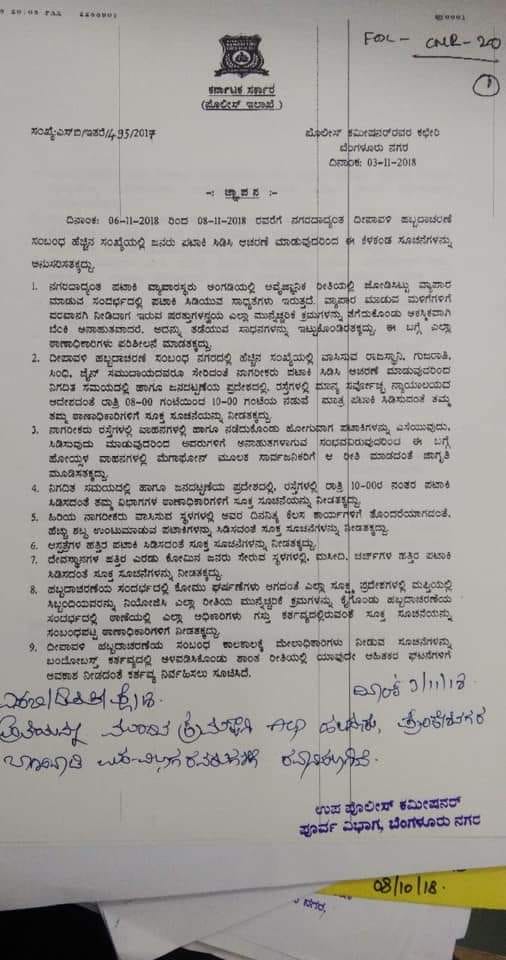 20:05 FAX
FOL- CNR-20
1
ಕರ್ನಾಟಕ ಸರ್ಕಾರ
(ಪೊಲೀಸ್ ಇಲಾಖೆ)
ಸಂಖ್ಯೆ:ಎಸ್‌ಬಿ/ಇತರೆ/495/2017
ಪೊಲೀಸ್ ಕಮೀಷನರ್‌ರವರ ಕಛೇರಿ
ಬೆಂಗಳೂರು ನಗರ
ದಿನಾಂಕ: 03-11-2018
-: ಜ್ಞಾಪನ :-
ದಿನಾಂಕ: 06-11-2018 ರಿಂದ 08-11-2018 ರವರೆಗೆ ನಗರದಾದ್ಯಂತ ದೀಪಾವಳಿ ಹಬ್ಬದಾಚರಣೆ
ಸಂಬಂಧ ಹೆಚ್ಚಿನ ಸಂಖ್ಯೆಯಲ್ಲಿ ಜನರು ಪಟಾಕಿ ಸಿಡಿಸಿ ಆಚರಣೆ ಮಾಡುವುದರಿಂದ ಈ ಕೆಳಕಂಡ ಸೂಚನೆಗಳನ್ನು
ಅನುಸರಿಸತಕ್ಕದ್ದು.
1. ನಗರದಾದ್ಯಂತ ಪಟಾಕಿ ವ್ಯಾಪಾರಸ್ಥರು ಅಂಗಡಿಯಲ್ಲಿ ಅವೈಜ್ಞಾನಿಕ ರೀತಿಯಲ್ಲಿ ಜೋಡಿಸಿಟ್ಟು ವ್ಯಾಪಾರ
ಮಾಡುವ ಸಂದರ್ಭದಲ್ಲಿ ಪಟಾಕಿ ಸಿಡಿಯುವ ಸಾಧ್ಯತೆಗಳು ಇರುತ್ತದೆ. ವ್ಯಾಪಾರ ಮಾಡುವ ಮಳಿಗೆಗಳಿಗೆ
ಪರವಾನಗಿ ನೀಡಿದಾಗ ಇರುವ ಷರತ್ತುಗಳನ್ವಯ ಎಲ್ಲಾ ಮುನ್ನೆಚ್ಚರಿಕೆ ಕ್ರಮಗಳನ್ನು ತೆಗೆದುಕೊಂಡು ಆಕಸ್ಮಿಕವಾಗಿ
ಬೆಂಕಿ ಅನಾಹುತವಾದರೆ. ಅದನ್ನು ತಡೆಯುವ ಸಾಧನಗಳನ್ನು ಇಟ್ಟುಕೊಂಡಿರತಕ್ಕದ್ದು. ಈ ಬಗ್ಗೆ ಎಲ್ಲಾ
ಠಾಣಾಧಿಕಾರಿಗಳು ಪರಿಶೀಲನೆ ಮಾಡತಕ್ಕದ್ದು.
2. ದೀಪಾವಳಿ ಹಬ್ಬದಾಚರಣೆ ಸಂಬಂಧ ನಗರದಲ್ಲಿ ಹೆಚ್ಚಿನ ಸಂಖ್ಯೆಯಲ್ಲಿ ವಾಸಿಸುವ ರಾಜಸ್ಥಾನಿ, ಗುಜರಾತಿ,
ಸಿಂಧಿ, ಜೈನ್ ಸಮುದಾಯದವರೂ ಸೇರಿದಂತೆ ನಾಗರೀಕರು ಪಟಾಕಿ ಸಿಡಿಸಿ ಆಚರಣೆ ಮಾಡುವುದರಿಂದ
ನಿಗದಿತ ಸಮಯದಲ್ಲಿ ಹಾಗೂ ಜನದಟ್ಟಣೆಯ ಪ್ರದೇಶದಲ್ಲಿ, ರಸ್ತೆಗಳಲ್ಲಿ ಮಾನ್ಯ ಸರ್ವೋಚ್ಛ ನ್ಯಾಯಾಲಯದ
ಆದೇಶದಂತೆ ರಾತ್ರಿ 08-00 ಗಂಟೆಯಿಂದ 10-00 ಗಂಟೆಯ ನಡುವೆ ಮಾತ್ರ ಪಟಾಕಿ ಸಿಡಿಸುವಂತೆ ತಮ್ಮ
ತಮ್ಮ ಠಾಣಾಧಿಕಾರಿಗಳಿಗೆ ಸೂಕ್ತ ಸೂಚನೆಯನ್ನು ನೀಡತಕ್ಕದ್ದು.
3. ನಾಗರೀಕರು ರಸ್ತೆಗಳಲ್ಲಿ ವಾಹನಗಳಲ್ಲಿ ಹಾಗೂ ನಡೆದುಕೊಂಡು ಹೋಗುವಾಗ ಪಟಾಕಿಗಳನ್ನು ಎಸೆಯುವುದು,
ಸಿಡಿಸುವುದು ಮಾಡುವುದರಿಂದ ಅವರುಗಳಿಗೆ ಅನಾಹುತಗಳಾಗುವ ಸಂಭವವಿರುವುದರಿಂದ ಈ ಬಗ್ಗೆ
ಹೊಯ್ಸಳ ವಾಹನಗಳಲ್ಲಿ ಮೆಗಾಫೋನ್ ಮೂಲಕ ಸಾರ್ವಜನಿಕರಿಗೆ ಆ ರೀತಿ ಮಾಡದಂತೆ ಜಾಗೃತಿ
ಮೂಡಿಸತಕ್ಕದ್ದು.
4. ನಿಗದಿತ ಸಮಯದಲ್ಲಿ ಹಾಗೂ ಜನದಟ್ಟಣೆಯ ಪ್ರದೇಶದಲ್ಲಿ, ರಸ್ತೆಗಳಲ್ಲಿ ರಾತ್ರಿ 10-00ರ ನಂತರ ಪಟಾಕಿ
ಸಿಡಿಸದಂತೆ ತಮ್ಮ ವಿಭಾಗಗಳ ಠಾಣಾಧಿಕಾರಿಗಳಿಗೆ ಸೂಕ್ತ ಸೂಚನೆಯನ್ನು ನೀಡತಕ್ಕದ್ದು.
5. ಹಿರಿಯ ನಾಗರೀಕರು ವಾಸಿಸುವ ಸ್ಥಳಗಳಲ್ಲಿ ಅವರ ದಿನನಿತ್ಯ ಕೆಲಸ ಕಾರ್ಯಗಳಿಗೆ ತೊಂದರೆಯಾಗದಂತೆ,
ಹೆಚ್ಚು ಶಬ್ದ ಉಂಟುಮಾಡುವ ಪಟಾಕಿಗಳನ್ನು ಸಿಡಿಸದಂತೆ ಸೂಕ್ತ ಸೂಚನೆಗಳನ್ನು ನೀಡತಕ್ಕದ್ದು.
6. ಆಸ್ಪತ್ರೆಗಳ ಹತ್ತಿರ ಪಟಾಕಿ ಸಿಡಿಸದಂತೆ ಸೂಕ್ತ ಸೂಚನೆಗಳನ್ನು ನೀಡತಕ್ಕದ್ದು.
7. ದೇವಸ್ಥಾನಗಳ ಹತ್ತಿರ ಎರಡು ಕೋಮಿನ ಜನರು ಸೇರುವ ಸ್ಥಳಗಳಲ್ಲಿ, ಮಸೀದಿ, ಚರ್ಚ್‌ಗಳ ಹತ್ತಿರ ಪಟಾಕಿ
ಸಿಡಿಸದಂತೆ ಸೂಕ್ತ ಸೂಚನೆಗಳನ್ನು ನೀಡತಕ್ಕದ್ದು.
8. ಹಬ್ಬದಾಚರಣೆಯ ಸಂದರ್ಭದಲ್ಲಿ ಕೋಮು ಘರ್ಷಣೆಗಳು ಆಗದಂತೆ ಎಲ್ಲಾ ಸೂಕ್ಷ್ಮ ಪ್ರದೇಶಗಳಲ್ಲಿ ಮಫ್ತಿಯಲ್ಲಿ
ಸಿಬ್ಬಂದಿಯವರನ್ನು ನಿಯೋಜಿಸಿ ಎಲ್ಲಾ ರೀತಿಯ ಮುನ್ನೆಚ್ಚರಿಕೆ ಕ್ರಮಗಳನ್ನು ಕೈಗೊಂಡು ಹಬ್ಬದಾಚರಣೆಯ
ಸಂದರ್ಭದಲ್ಲಿ ಠಾಣೆಯಲ್ಲಿ ಎಲ್ಲಾ ಅಧಿಕಾರಿಗಳು ಗಸ್ತು ಕರ್ತವ್ಯದಲ್ಲಿರುವಂತೆ ಸೂಕ್ತ ಸೂಚನೆಯನ್ನು
ಸಂಬಂಧಪಟ್ಟ ಠಾಣಾಧಿಕಾರಿಗಳಿಗೆ ನೀಡತಕ್ಕದ್ದು.
9. ದೀಪಾವಳಿ ಹಬ್ಬದಾಚರಣೆಯ ಸಂಬಂಧ ಕಾಲಕಾಲಕ್ಕೆ ಮೇಲಾಧಿಕಾರಿಗಳು ನೀಡುವ ಸೂಚನೆಗಳನ್ನು
ಬಂದೋಬಸ್ತ್ ಕರ್ತವ್ಯದಲ್ಲಿ ಅಳವಡಿಸಿಕೊಂಡು ಶಾಂತ ರೀತಿಯಲ್ಲಿ ಯಾವುದೇ ಅಹಿತಕರ ಘಟನೆಗಳಿಗೆ
ಅವಕಾಶ ನೀಡದಂತೆ ಕರ್ತವ್ಯ ನಿರ್ವಹಿಸಲು ಸೂಚಿಸಿದೆ.
ದಿನಾಂಕ 3/11/18
ಉಪ ಪೊಲೀಸ್ ಕಮೀಷನರ್
ಪೂರ್ವ ವಿಭಾಗ, ಬೆಂಗಳೂರು ನಗರ
08/10/18.